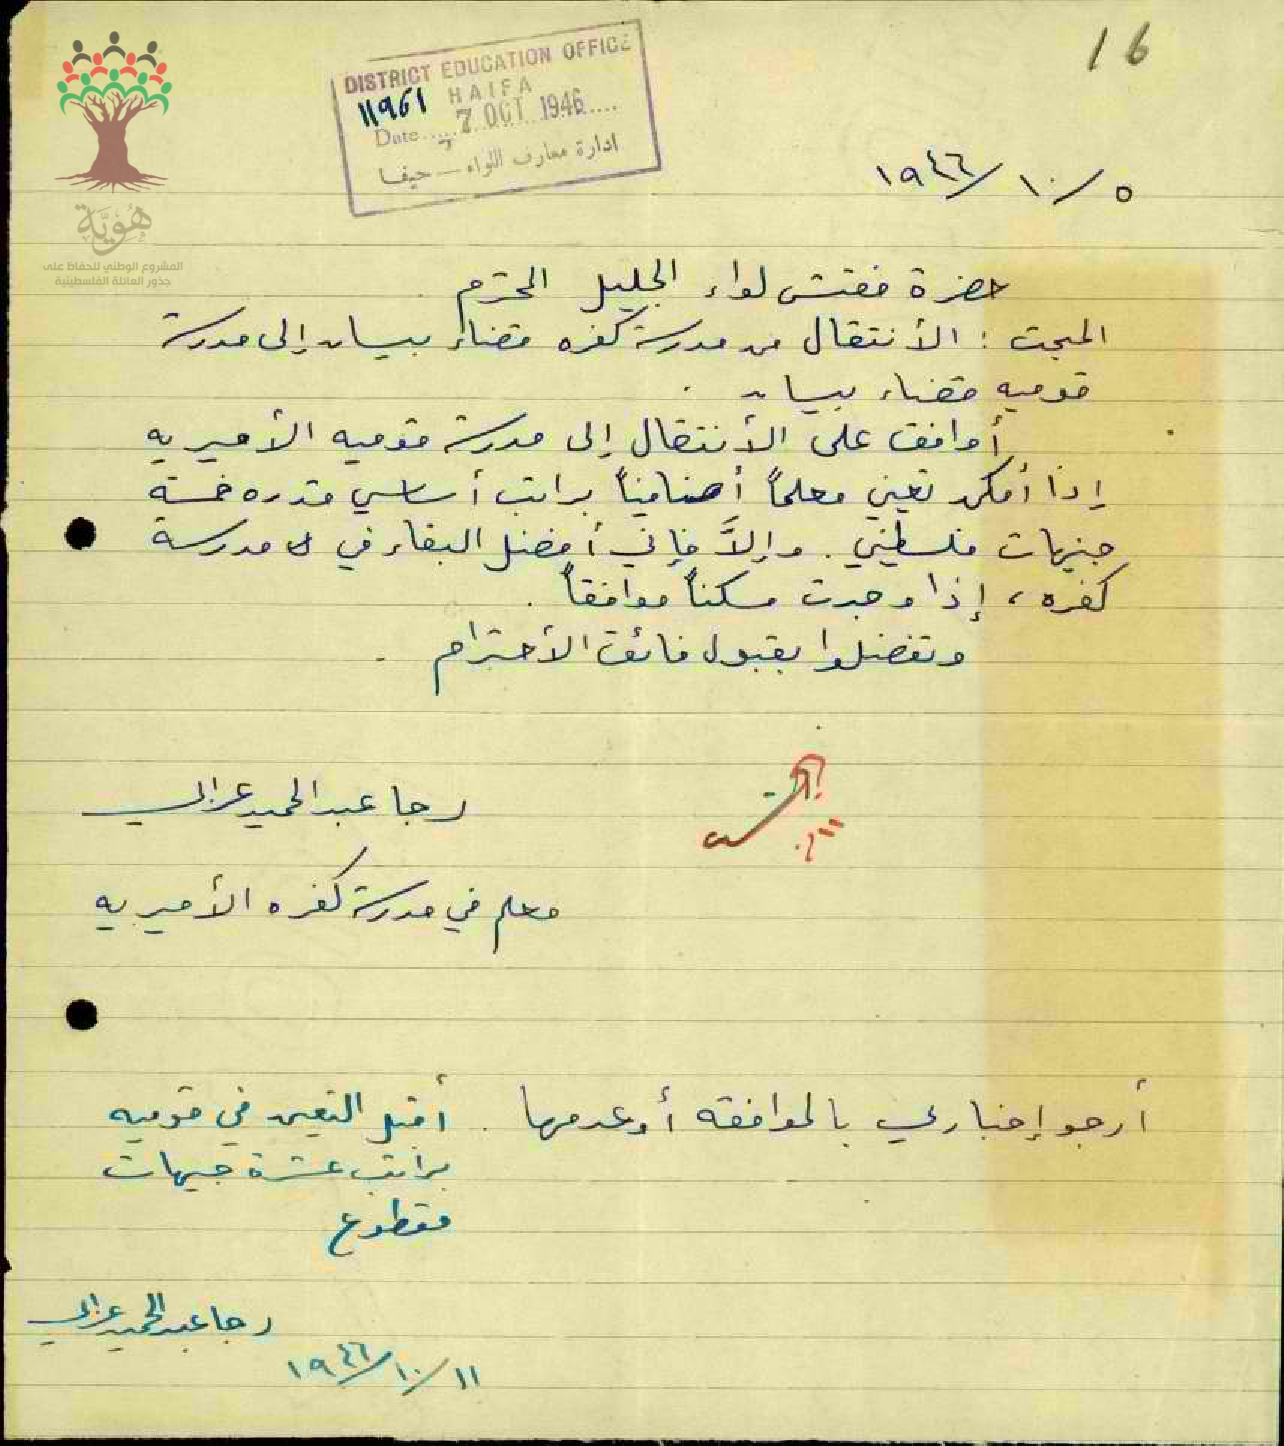 16
DISTRICT EDUCATION OFFICE
HAIFA
11961
Date 7 OCT 1946
ادارة معارف اللواء - حيفا
هُوِيَّة
المشروع الوطني للحفاظ على
جذور العائلة الفلسطينية
٥/١٠/١٩٤٦
حضرة مفتش لواء الجليل المحترم
المبحث : الأنتقال من مدرسة كفره قضاء بيسان إلى مدرسة
قوميه قضاء بيسان .
أوافق على الأنتقال إلى مدرسة قوميه الأميريه
إذا أمكن تعيني معلماً أضافياً براتب أساسي قدره خمسة
جنيهات فلسطيني . وإلاَّ فإني أفضل البقاء في مدرسة
كفره ، إذا وجدت مسكناً موافقاً .
وتفضلوا بقبول فائق الأحترام .
رجا عبد الحميد عرابي
معلم في مدرسة كفره الأميريه
أرجو إخباري بالموافقه أو عدمها .
أقبل التعيين في قوميه
براتب عشرة جنيهات
مقطوع
رجا عبد الحميد عرابي
١١/١٠/١٩٤٦